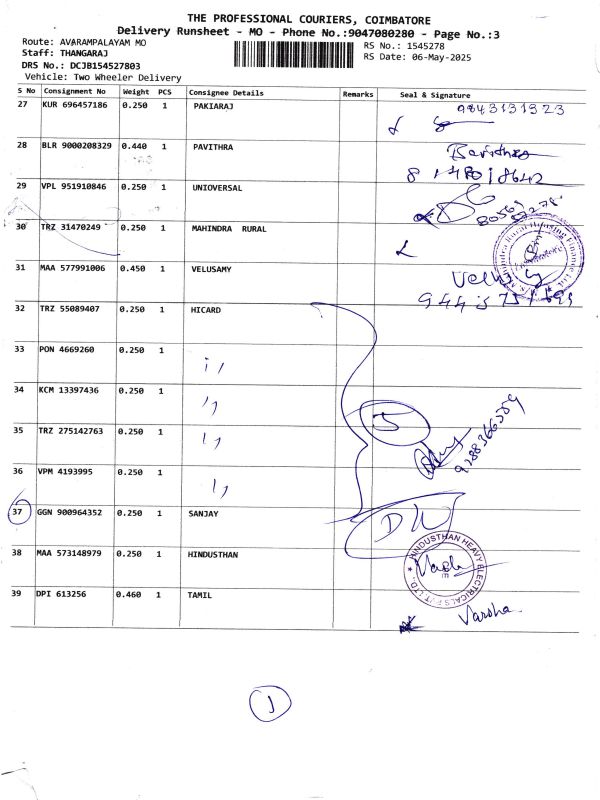 THE PROFESSIONAL COURIERS, COIMBATORE
Delivery Runsheet - MO - Phone No.:9047080280 - Page No.:3
Route: AVARAMPALAYAM MO
Staff: THANGARAJ
DRS No.: DCJB154527803
Vehicle: Two Wheeler Delivery
RS No.: 1545278
RS Date: 06-May-2025
S No Consignment No Weight PCS Consignee Details Remarks Seal & Signature
27 KUR 696457186 0.250 1 PAKIARAJ 9843131323
28 BLR 9000208329 0.440 1 PAVITHRA
29 VPL 951910846 0.250 1 UNIOVERSAL
30 TRZ 31470249 0.250 1 MAHINDRA RURAL
31 MAA 577991006 0.450 1 VELUSAMY
32 TRZ 55089407 0.250 1 HICARD
33 PON 4669260 0.250 1 ,,
34 KCM 13397436 0.250 1 ,,
35 TRZ 275142763 0.250 1 ,,
36 VPM 4193995 0.250 1 ,,
5
37 GGN 900964352 0.250 1 SANJAY
38 MAA 573148979 0.250 1 HINDUSTHAN
HINDUSTHAN HEAVY ELECTRICALS PVT LTD.,
39 DPI 613256 0.460 1 TAMIL
Varsha
1